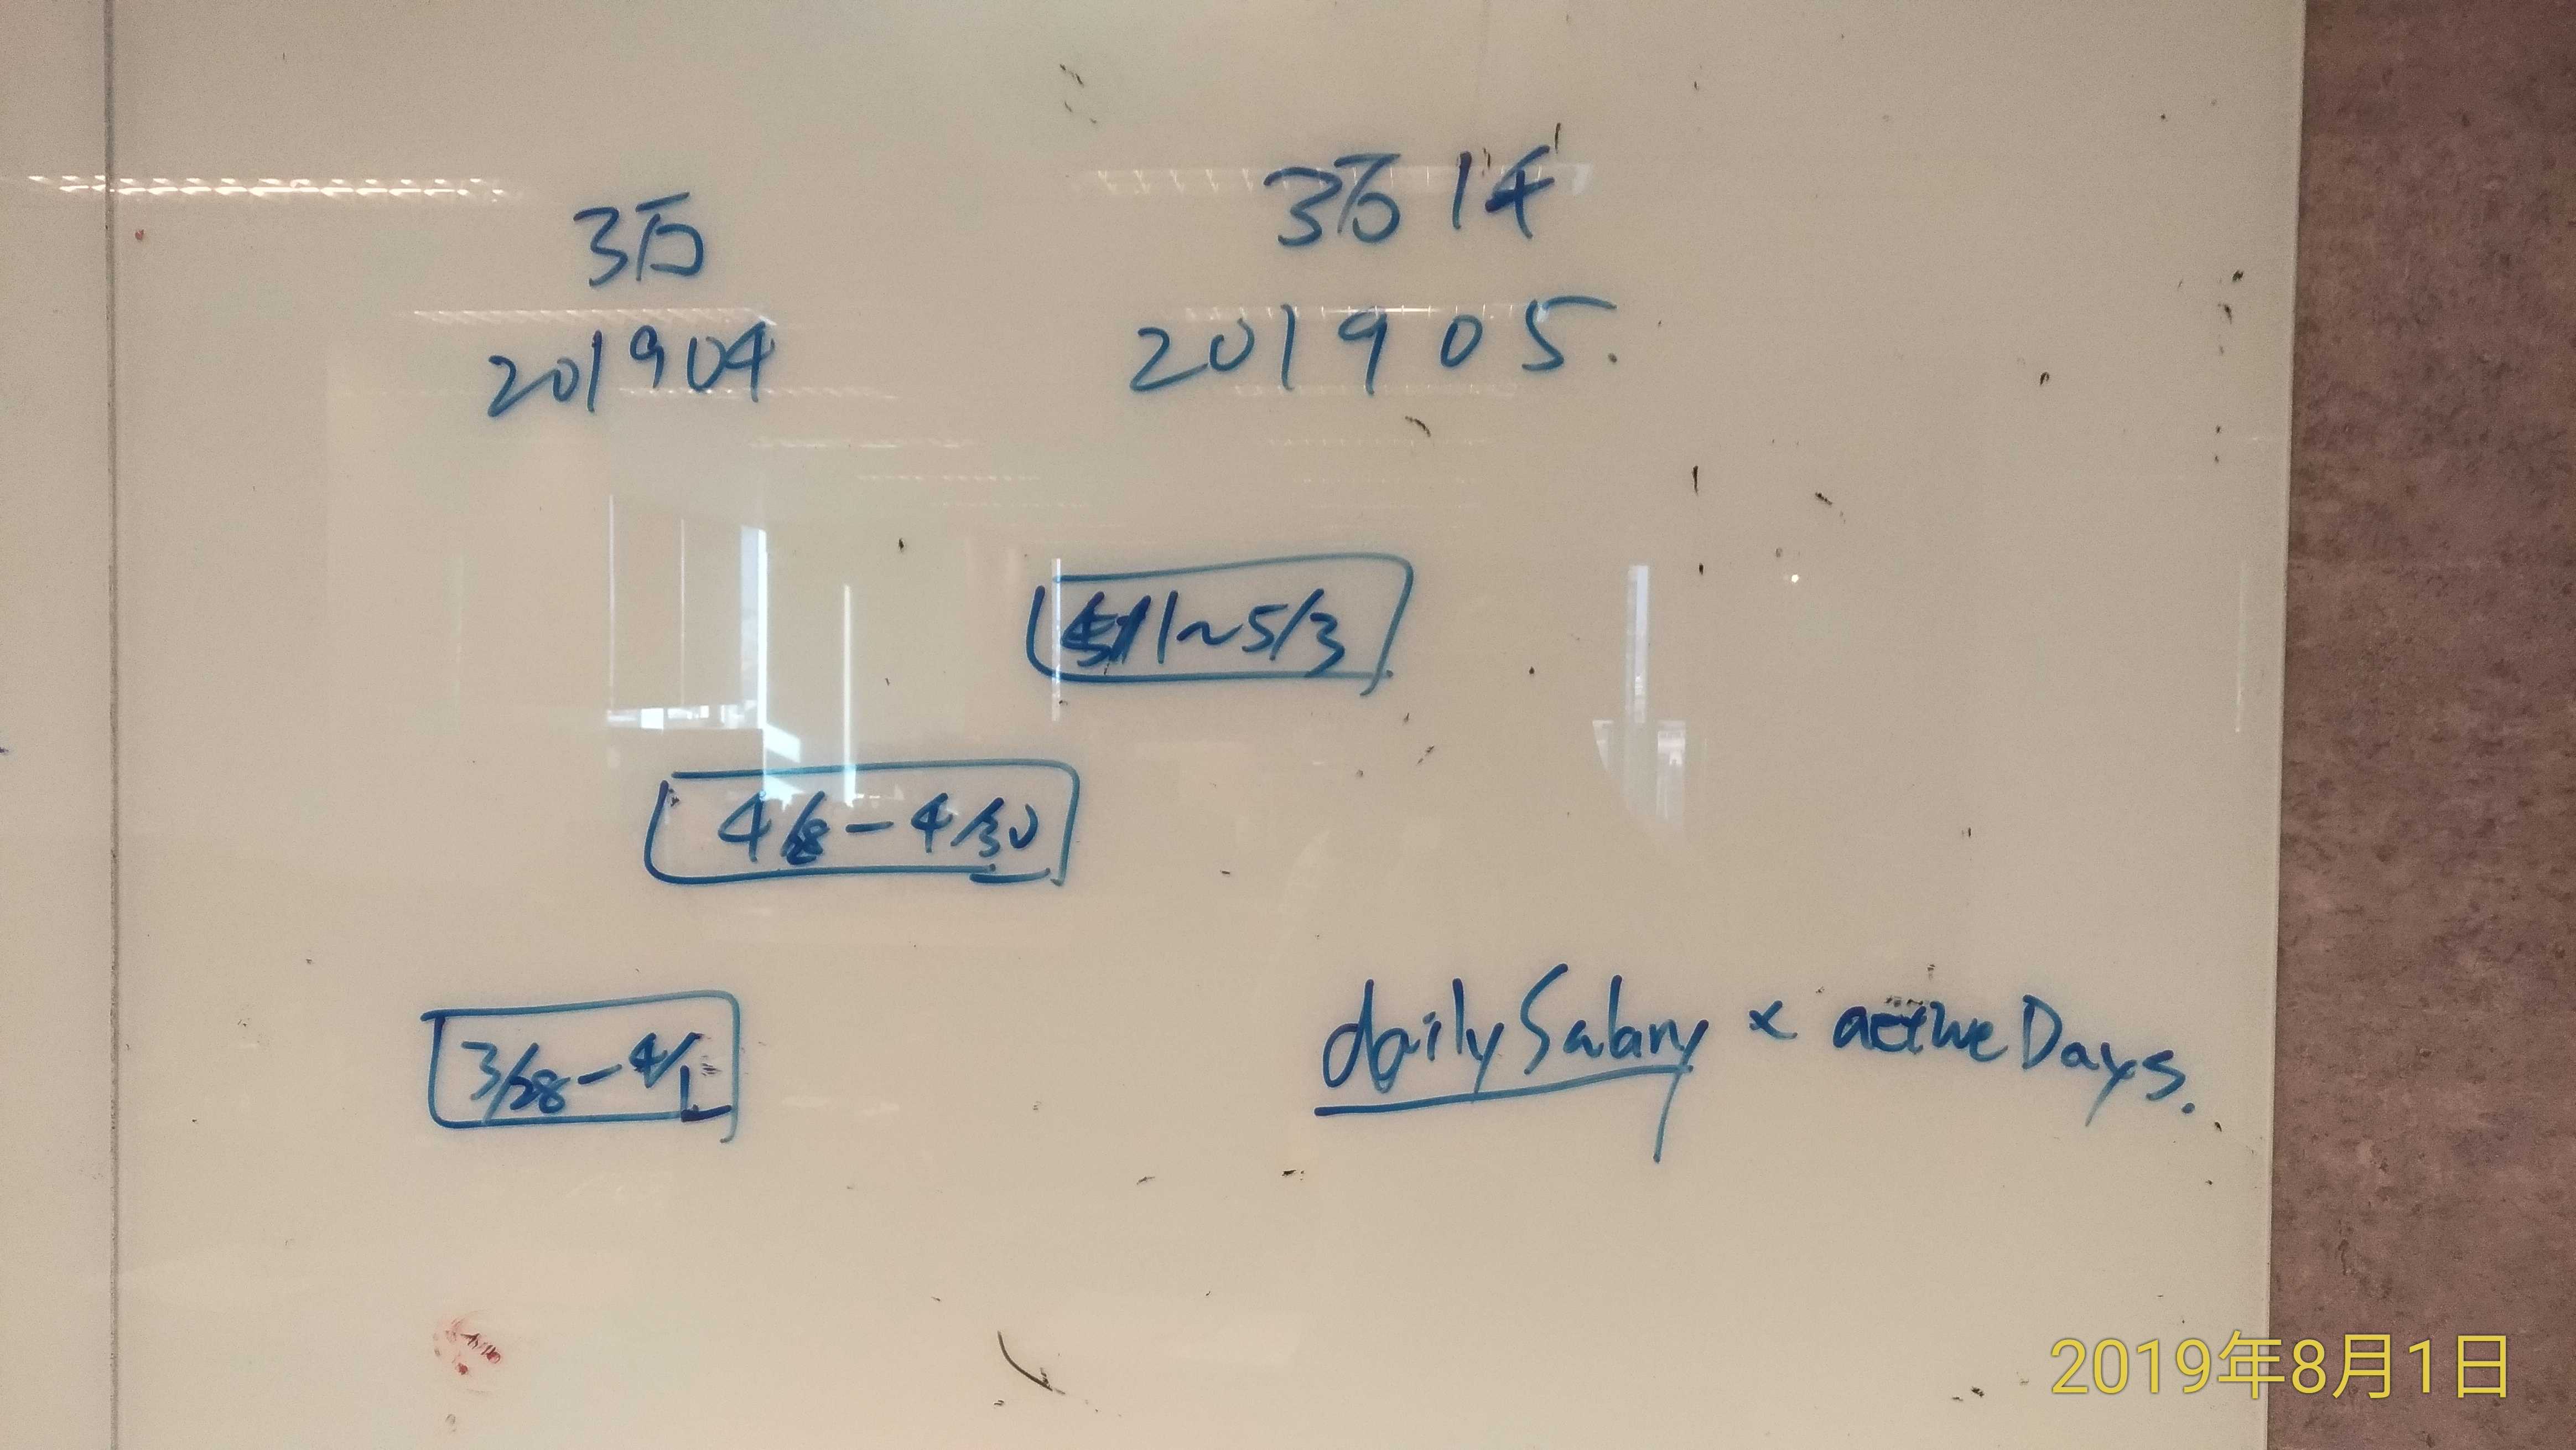 3万
201904
3万1千
201905.
5/1~5/3
4/28-4/30
3/28-4/1
dailySalary × activeDays.
2019年8月1日